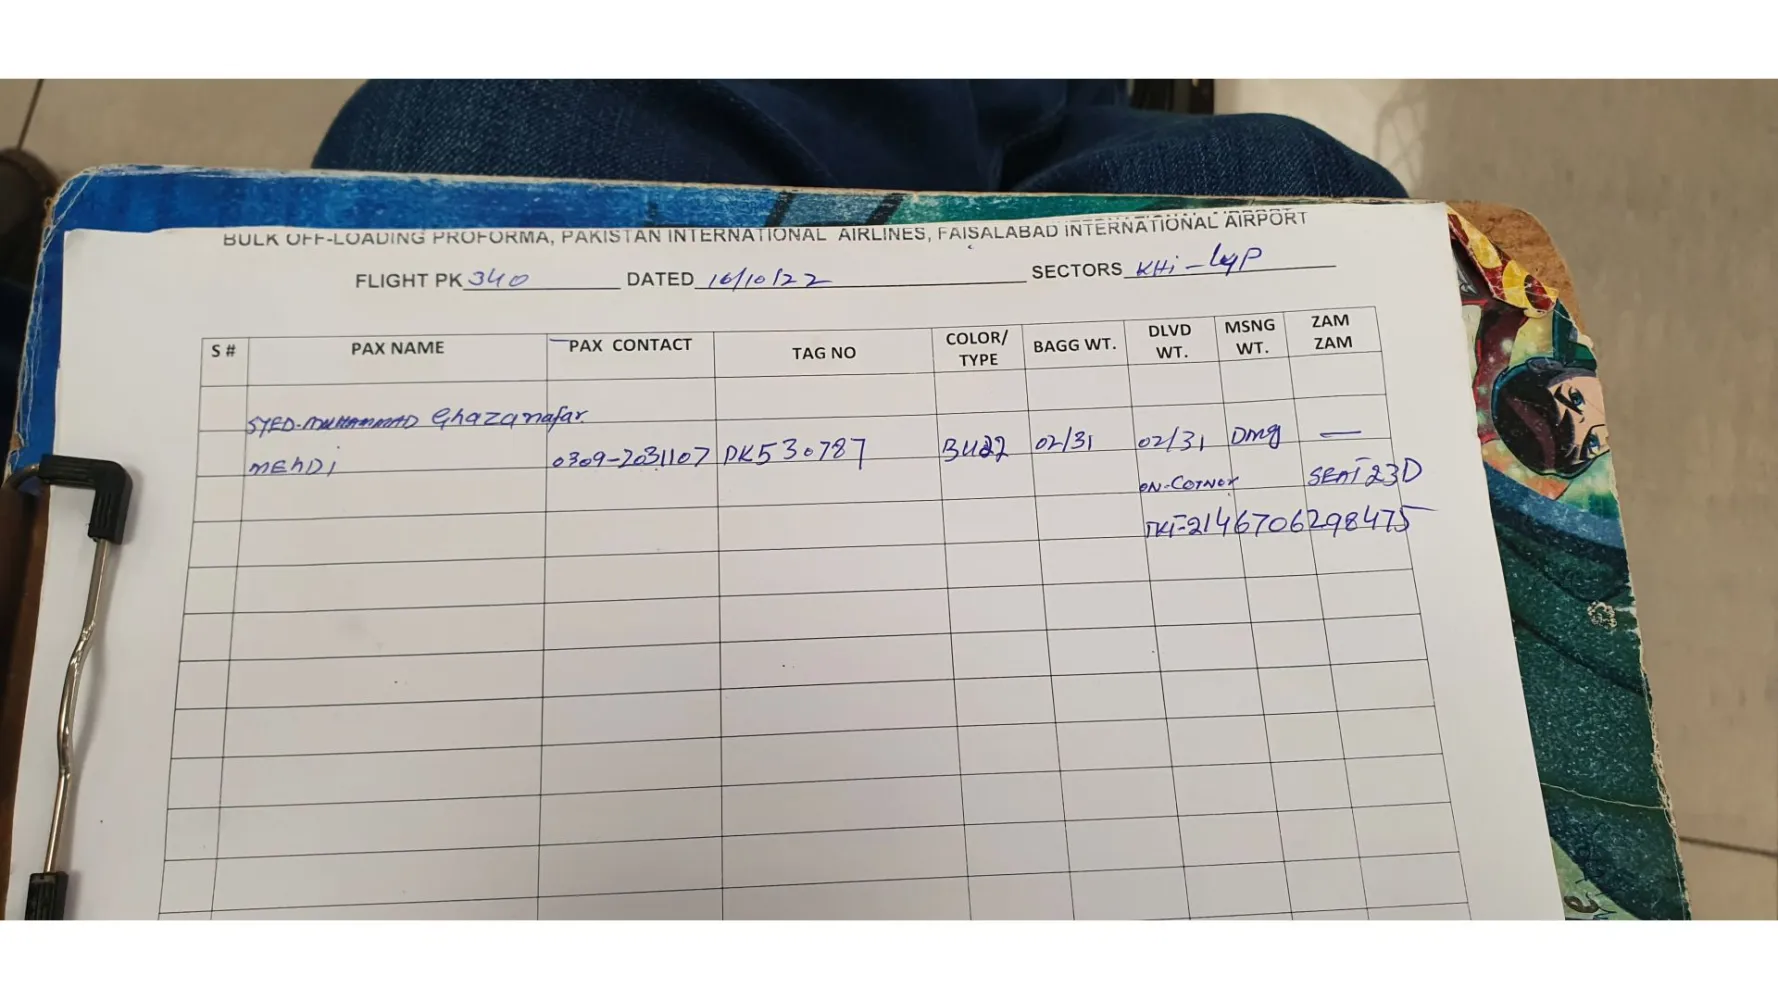 BULK OFF-LOADING PROFORMA, PAKISTAN INTERNATIONAL AIRLINES, FAISALABAD INTERNATIONAL AIRPORT
FLIGHT PK 340 DATED 16/10/22 SECTORS KHI - LYP
S # PAX NAME PAX CONTACT TAG NO COLOR/ TYPE BAGG WT. DLVD WT. MSNG WT. ZAM ZAM
SYED-MUHAMMAD Ghazanafar
MEHDI 0309-2031107 PK530787 BU22 02/31 02/31 Dmg —
ON-Cornor SEAT 23D
TKT-2146706298475